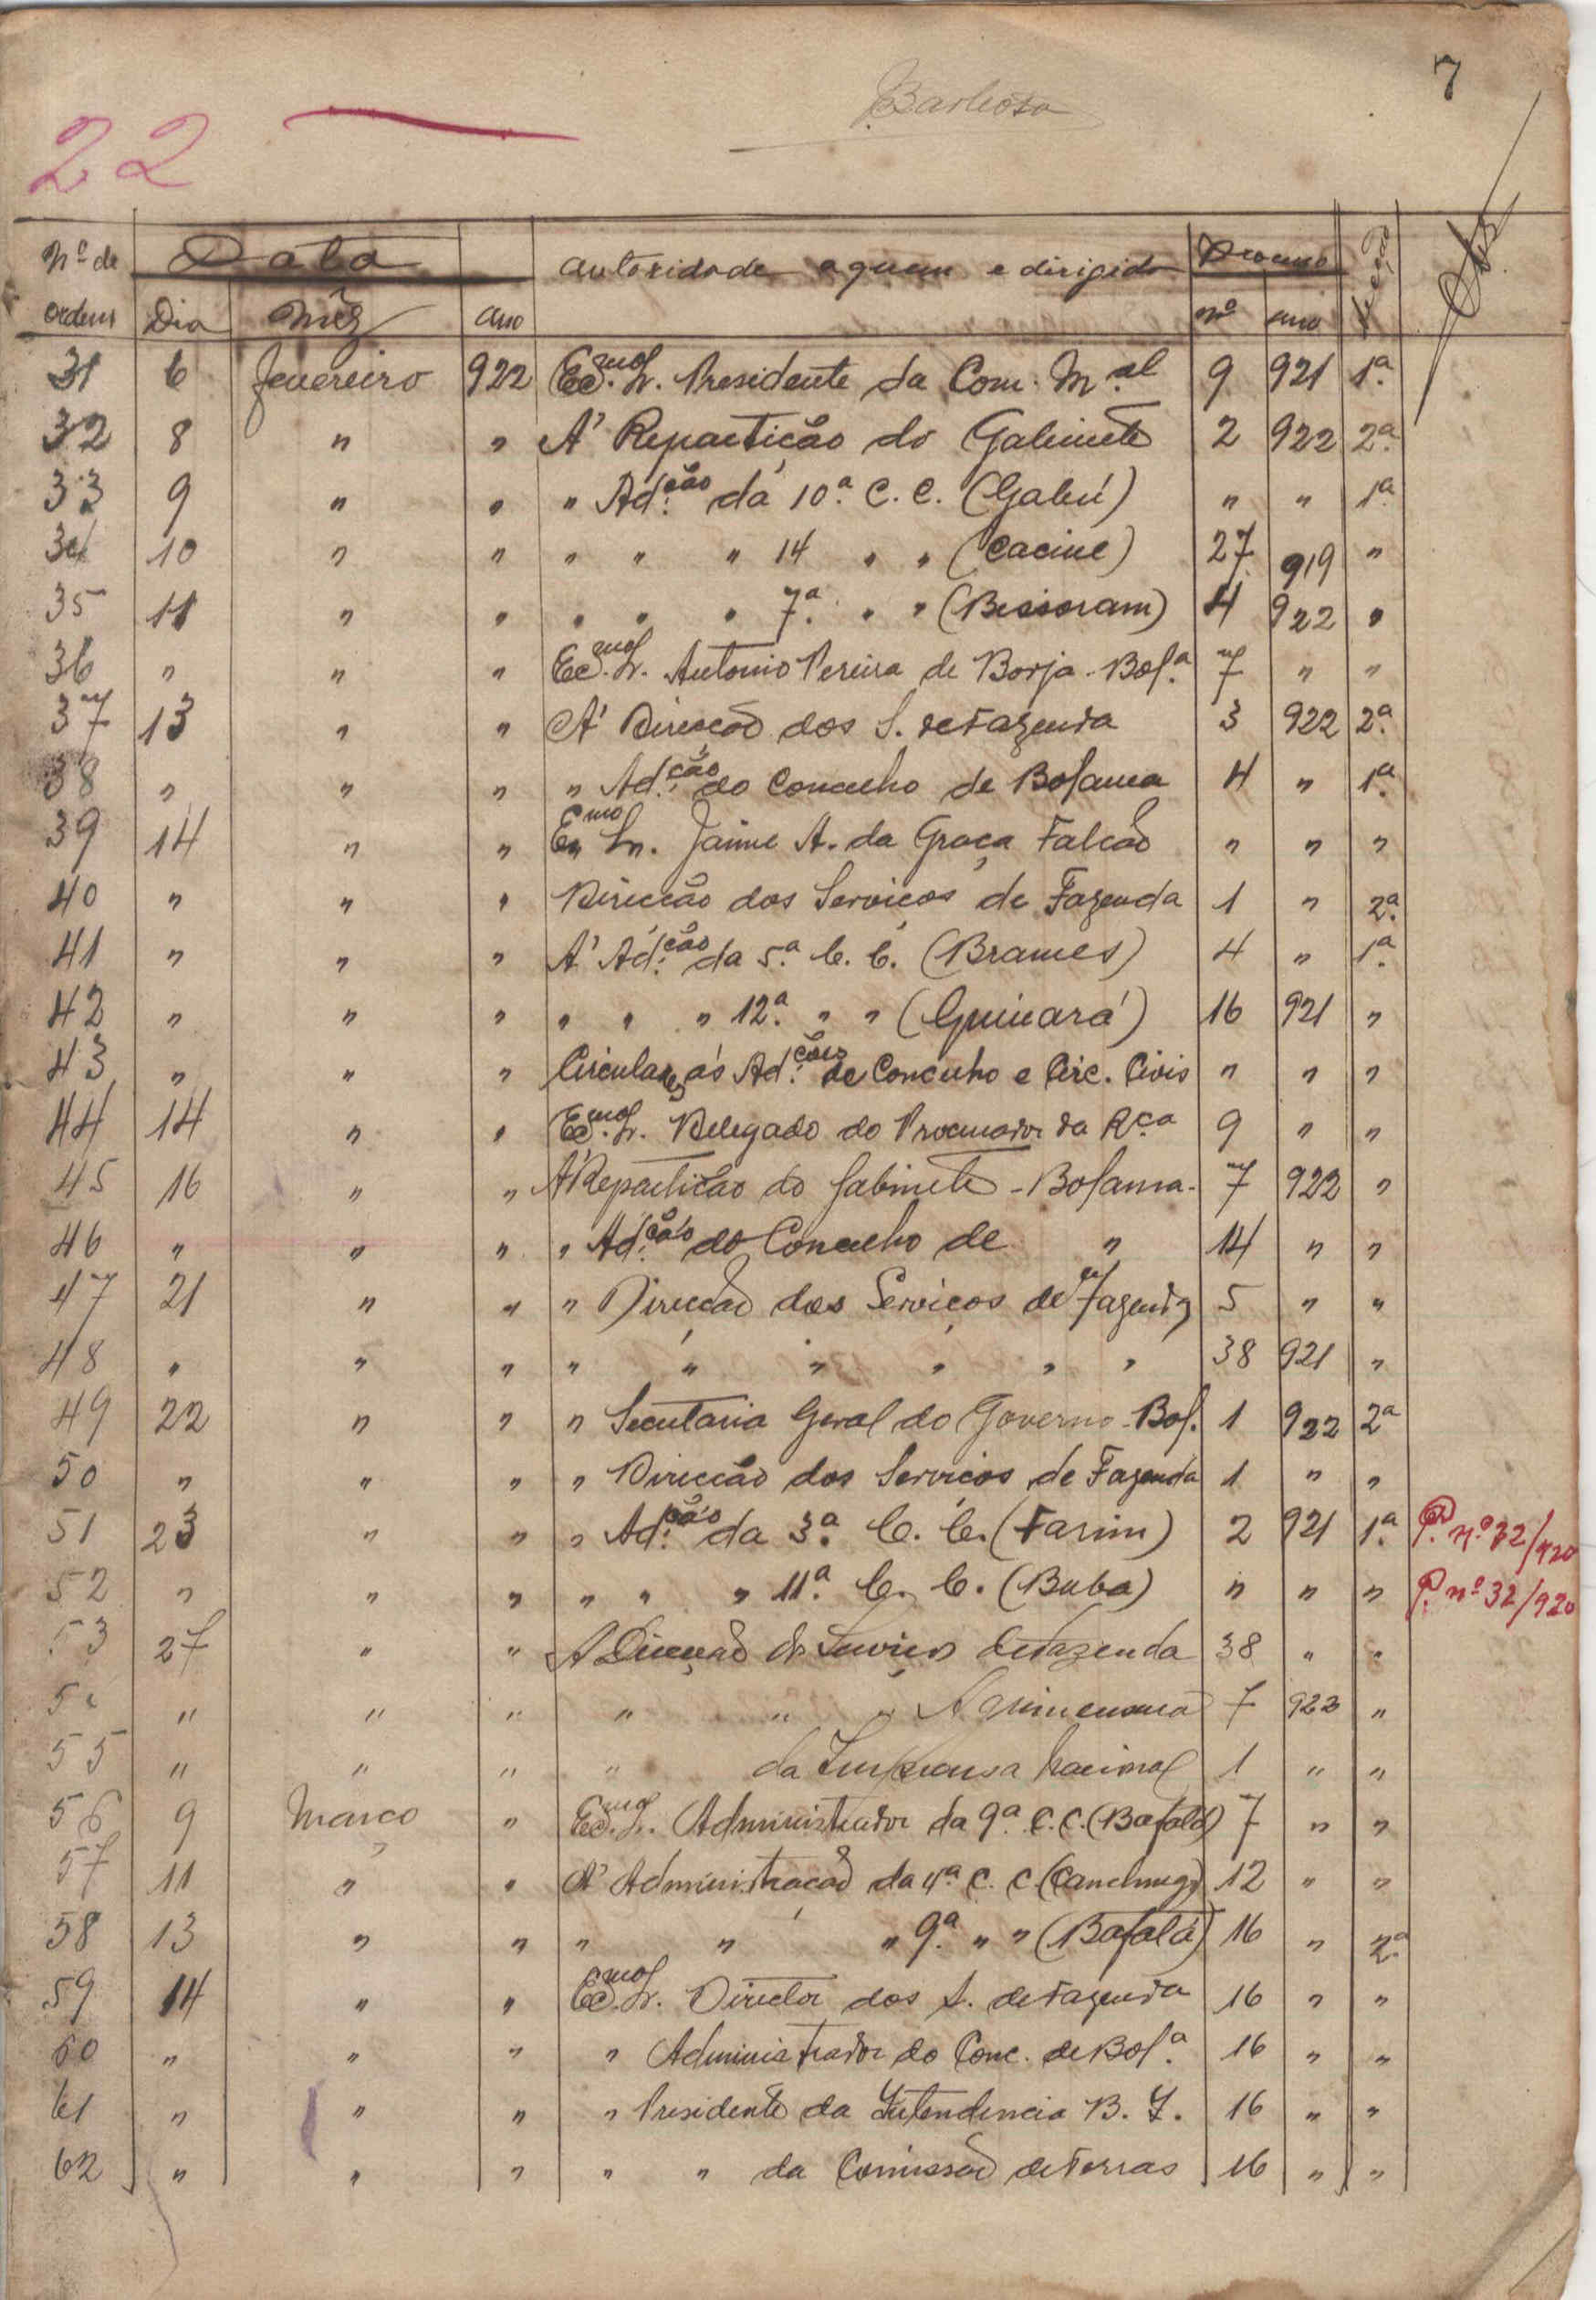 7
Barbosa
22
Nº de ordem Data Autoridade a quem e dirigido Processo Secção Obs.
Dia Mêz Ano nº ano
31 6 Fevereiro 922 Exmo Sr. Presidente da Com. Mal 9 921 1ª
32 8 " " A' Repartição do Gabinete 2 922 2ª
33 9 " " " Ad.ção da 10ª C. C. (Gabú) " " 1ª
34 10 " " " " " 14 " " (Cacine) 27 919 "
35 11 " " " " " 7ª " " (Bissoram) 4 922 "
36 " " " Exmo Sr. Antonio Pereira de Borja - Bolª 7 " "
37 13 " " A' Direcção dos S. de Fazenda 3 922 2ª
38 " " " " Ad.ção do Concelho de Bolama 4 " 1ª
39 14 " " Exmo Sr. Jaime A. da Graça Falcão " " "
40 " " " Direcção dos Serviços de Fazenda 1 " 2ª
41 " " " A' Ad.ção da 5ª C. C. (Brames) 4 " 1ª
42 " " " " " " 12ª " " (Quinará) 16 921 "
43 " " " Circulares ás Ad.ções de Concelho e Circ. Civis " " "
44 14 " " Exmo Sr. Delegado do Procurador da Rça 9 " "
45 16 " " A' Repartição do Gabinete - Bolama - 7 922 "
46 " " " " Ad.ção do Concelho de " 14 " "
47 21 " " " Direcção dos Serviços de Fazenda 5 " "
48 " " " " " " " " " 38 921 "
49 22 " " " Secretaria Geral do Governo - Bol. 1 922 2ª
50 " " " " Direcção dos Serviços de Fazenda 1 " "
51 23 " " " Ad.ção da 3ª C. C. (Farim) 2 921 1ª P. nº 32/920
52 " " " " " " 11ª C. C. (Buba) " " " P. nº 32/920
53 27 " " A Direcção de Serviços de Fazenda 38 " "
5 " " " " " " Agrimensura 7 922 "
55 " " " " da Imprensa Nacional 1 " "
56 9 Março " Exmo Sr. Administrador da 9ª C. C. (Bafatá) 7 " "
57 11 " " A' Administração da 4ª C. C. (Canchungo) 12 " "
58 13 " " " " " 9ª " " (Bafatá) 16 " 2ª
59 14 " " Exmo Sr. Director dos S. de Fazenda 16 " "
60 " " " " Administrador do Conc. de Bolª 16 " "
61 " " " " Presidente da Intendencia B. I. 16 " "
62 " " " " " da Comissão de Terras 16 " "